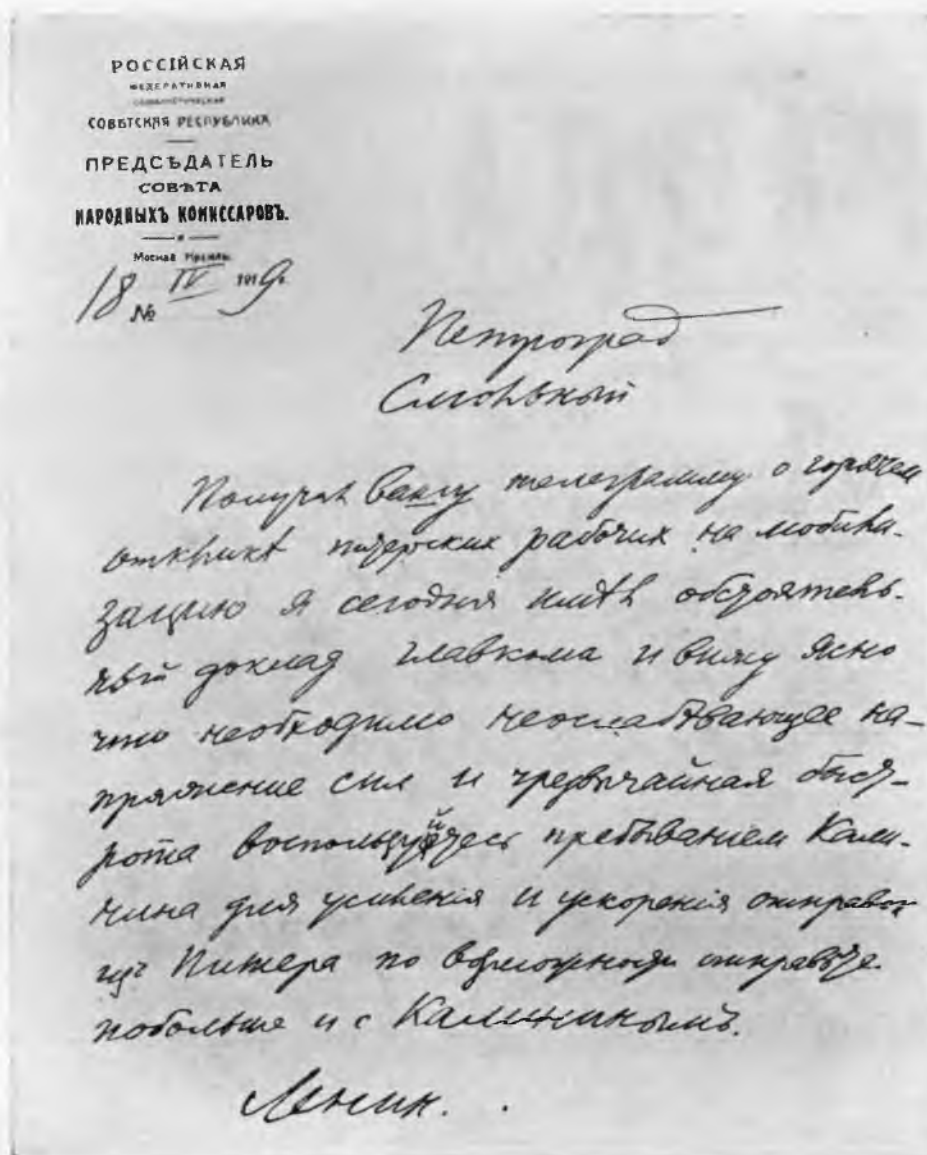 РОССІЙСКАЯ
ФЕДЕРАТИВНАЯ
СОЦІАЛИСТИЧЕСКАЯ
СОВѢТСКАЯ РЕСПУБЛИКА
ПРЕДСѢДАТЕЛЬ
СОВѢТА
НАРОДНЫХЪ КОМИССАРОВЪ.
Москва Кремль
18 IV 1919 г.
№
Петроград
Смольный
Получил вашу телеграмму о горячем
отклике питерских рабочих на мобили-
зацию я сегодня имел обстоятель-
ный доклад главкома и вижу ясно
что необходимо неослабевающее на-
пряжение сил и чрезвычайная быст-
рота воспользуйтесь пребыванием Кали-
нина для усиления и ускорения отправок
из Питера по возможности отправьте
побольше и с Калининымъ.
Ленин.